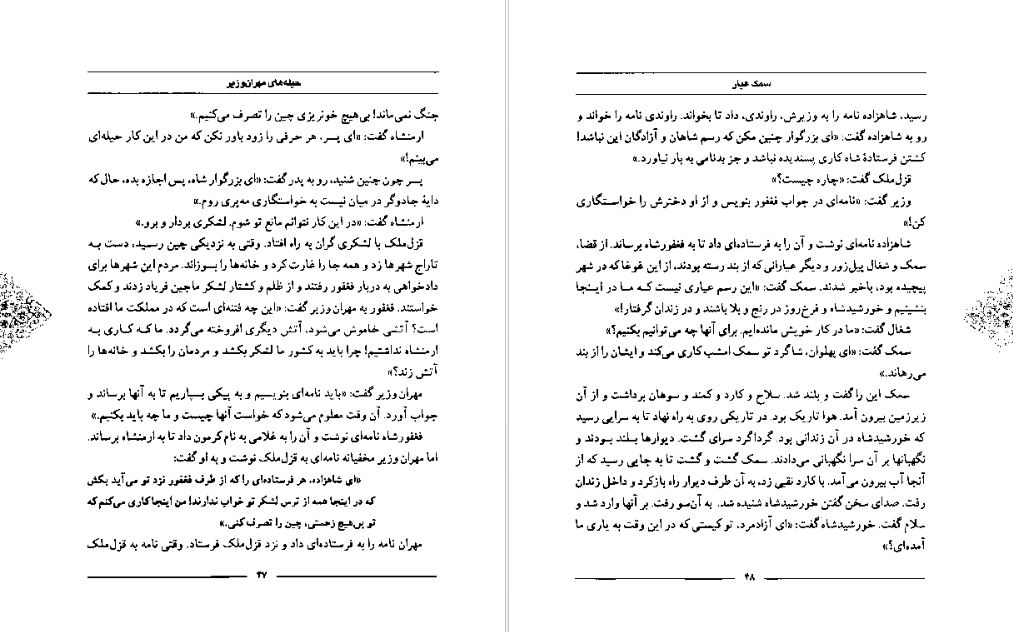 حیله‌های مهران‌وزیر
جنگ نمی‌ماند! بی‌هیچ خونریزی چین را تصرف می‌کنیم.»
ارمنشاه گفت: «ای پسر، هر حرفی را زود باور نکن که من در این کار حیله‌ای
می‌بینم!»
پسر چون چنین شنید، رو به پدر گفت: «ای بزرگوار شاه، پس اجازه بده، حال که
دایهٔ جادوگر در میان نیست به خواستگاری مه‌پری روم.»
ارمنشاه گفت: «در این کار نتوانم مانع تو شوم. لشکری بردار و برو.»
قزل‌ملک با لشکری گران به راه افتاد. وقتی به نزدیکی چین رسید، دست به
تاراج شهرها زد و همه جا را غارت کرد و خانه‌ها را بسوزاند. مردم این شهرها برای
دادخواهی به دربار فغفور رفتند و از ظلم و کشتار لشکر ماچین فریاد زدند و کمک
خواستند. فغفور به مهران‌وزیر گفت: «این چه فتنه‌ای است که در مملکت ما افتاده
است؟ آتشی خاموش می‌شود، آتش دیگری افروخته می‌گردد. ما که کاری به
ارمنشاه نداشتیم! چرا باید به کشور ما لشکر بکشد و مردمان را بکشد و خانه‌ها را
آتش زند؟»
مهران وزیر گفت: «باید نامه‌ای بنویسیم و به پیکی بسپاریم تا به آنها برساند و
جواب آورد. آن وقت معلوم می‌شود که خواست آنها چیست و ما چه باید بکنیم.»
فغفورشاه نامه‌ای نوشت و آن را به غلامی به نام گرمون داد تا به ارمنشاه برساند.
اما مهران وزیر مخفیانه نامه‌ای به قزل‌ملک نوشت و به او گفت:
«ای شاهزاده، هر فرستاده‌ای را که از طرف فغفور نزد تو می‌آید بکش
که در اینجا همه از ترس لشکر تو خواب ندارند! من اینجا کاری می‌کنم که
تو بی‌هیچ زحمتی، چین را تصرف کنی.»
مهران نامه را به فرستاده‌ای داد و نزد قزل‌ملک فرستاد. وقتی نامه به قزل‌ملک
۴۷
سمک عیار
رسید، شاهزاده نامه را به وزیرش، راوندی، داد تا بخواند. راوندی نامه را خواند و
رو به شاهزاده گفت: «ای بزرگوار چنین مکن که رسم شاهان و آزادگان این نباشد!
کشتن فرستادهٔ شاه کاری پسندیده نباشد و جز بدنامی به بار نیاورد.»
قزل‌ملک گفت: «چاره چیست؟»
وزیر گفت: «نامه‌ای در جواب فغفور بنویس و از او دخترش را خواستگاری
کن!»
شاهزاده نامه‌ای نوشت و آن را به فرستاده‌ای داد تا به فغفورشاه برساند. از قضا،
سمک و شغال پیل‌زور و دیگر عیارانی که از بند رسته بودند، از این غوغا که در شهر
پیچیده بود، باخبر شدند. سمک گفت: «این رسم عیاری نیست که ما در اینجا
بنشینیم و خورشیدشاه و فرخ‌روز در رنج و بلا باشند و در زندان گرفتار!»
شغال گفت: «ما در کار خویش مانده‌ایم. برای آنها چه می‌توانیم بکنیم؟»
سمک گفت: «ای پهلوان، شاگرد تو سمک امشب کاری می‌کند و ایشان را از بند
می‌رهاند.»
سمک این را گفت و بلند شد. سلاح و کارد و کمند و سوهان برداشت و از آن
زیرزمین بیرون آمد. هوا تاریک بود. در تاریکی روی به راه نهاد تا به سرایی رسید
که خورشیدشاه در آن زندانی بود. گرداگرد سرای گشت. دیوارها بلند بودند و
نگهبانها بر آن سرا نگهبانی می‌دادند. سمک گشت و گشت تا به جایی رسید که از
آنجا آب بیرون می‌آمد. با کارد نقبی زد، به آن طرف دیوار راه بازکرد و داخل زندان
رفت. صدای سخن گفتن خورشیدشاه شنیده شد. به آن‌سو رفت. بر آنها وارد شد و
سلام گفت. خورشیدشاه گفت: «ای آزادمرد، تو کیستی که در این وقت به یاری ما
آمده‌ای؟»
۴۸